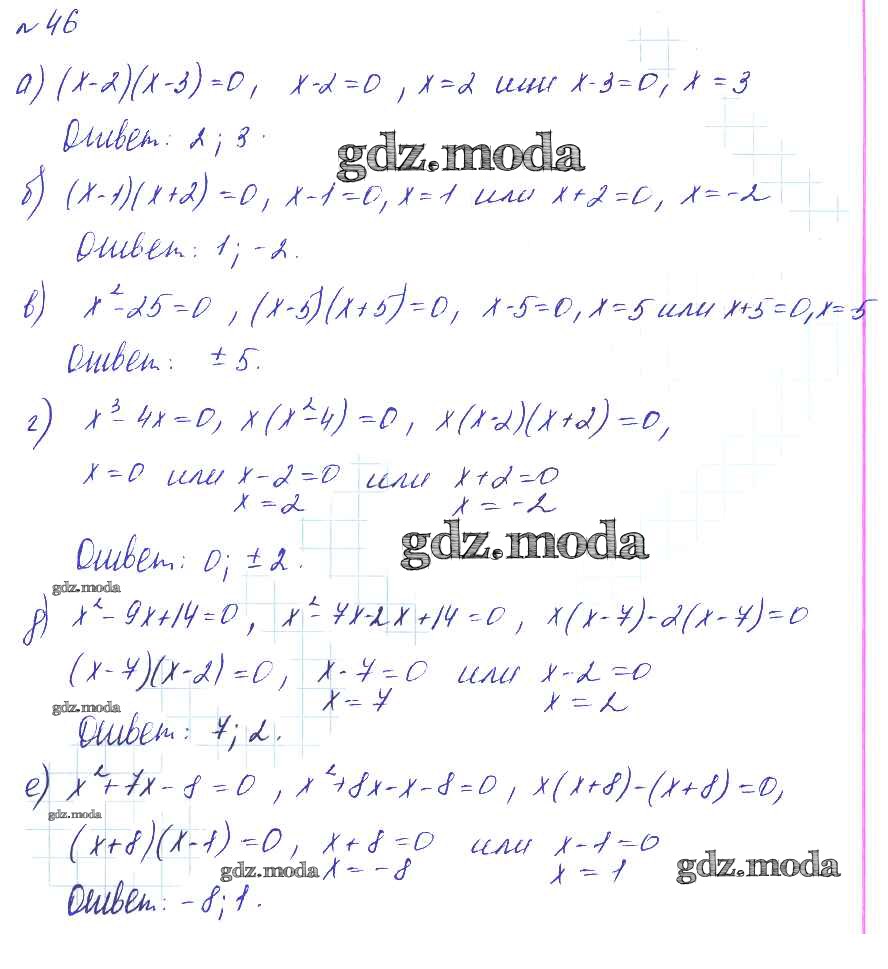 № 46
а) (x-2)(x-3)=0, x-2=0, x=2 или x-3=0, x=3
Ответ: 2; 3.
gdz.moda
б) (x-1)(x+2)=0, x-1=0, x=1 или x+2=0, x=-2
Ответ: 1; -2.
в) x²-25=0, (x-5)(x+5)=0, x-5=0, x=5 или x+5=0, x=-5
Ответ: ±5.
г) x³-4x=0, x(x²-4)=0, x(x-2)(x+2)=0,
x=0 или x-2=0 или x+2=0
x=2 x=-2
gdz.moda
Ответ: 0; ±2.
gdz.moda
д) x²-9x+14=0, x²-7x-2x+14=0, x(x-7)-2(x-7)=0
(x-7)(x-2)=0, x-7=0 или x-2=0
gdz.moda x=7 x=2
Ответ: 7; 2.
е) x²+7x-8=0, x²+8x-x-8=0, x(x+8)-(x+8)=0,
gdz.moda
(x+8)(x-1)=0, x+8=0 или x-1=0
gdz.moda x=-8 x=1 gdz.moda
Ответ: -8; 1.